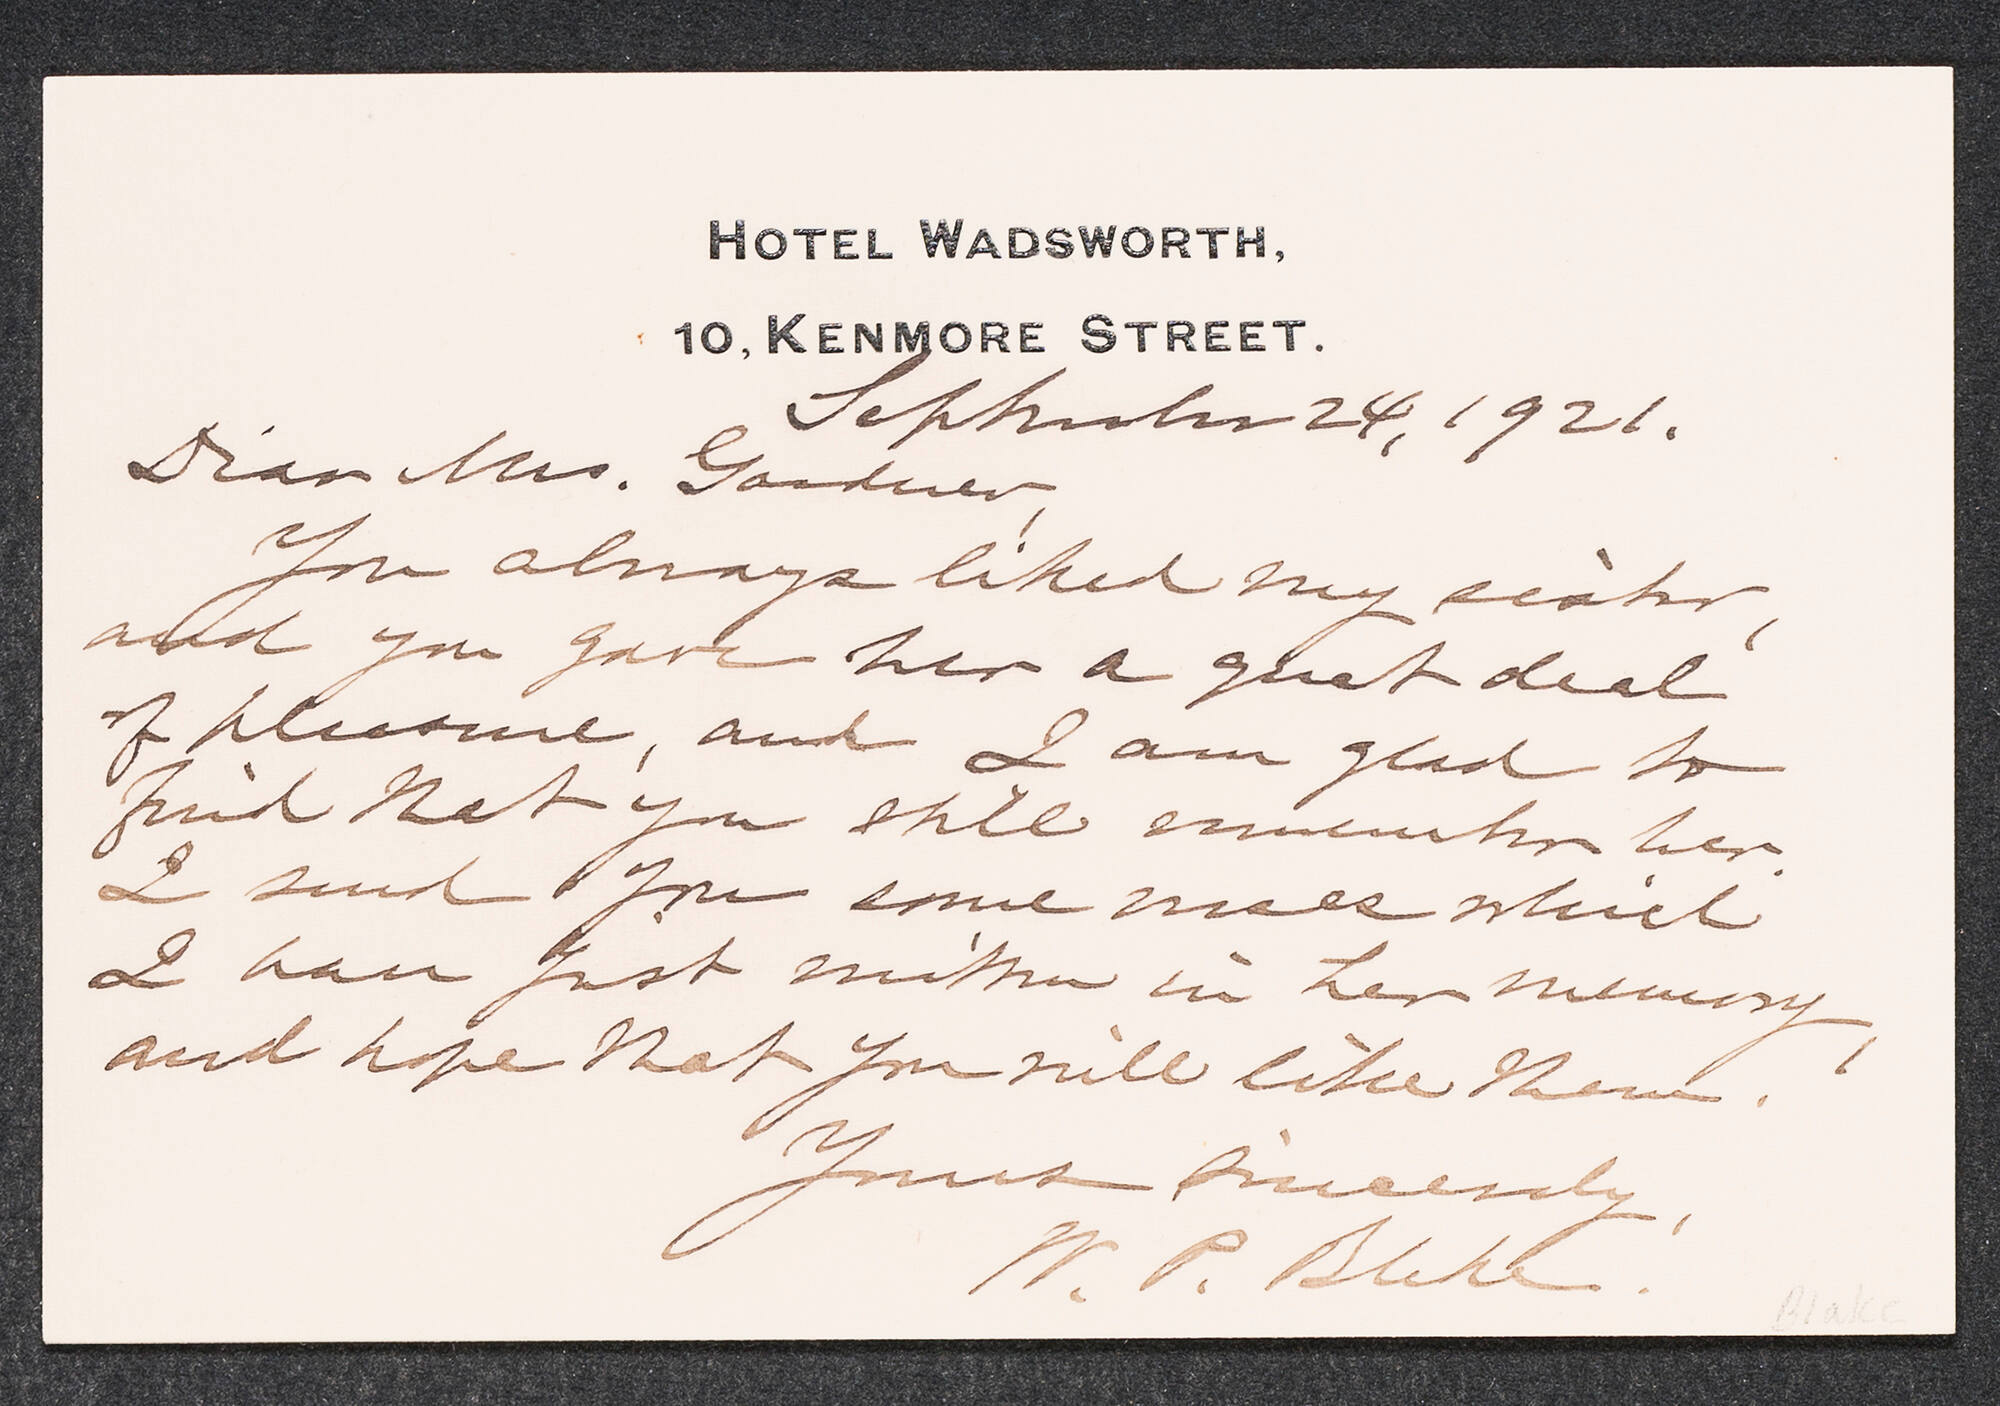 HOTEL WADSWORTH,
10, KENMORE STREET.
September 24, 1921.
Dear Mrs. Gardner,
You always liked my sister,
and you gave her a great deal
of pleasure, and I am glad to
find that you still remember her.
I send you some verses which
I have just written in her memory,
and hope that you will like them.
Yours sincerely,
W. P. Blake.
Blake